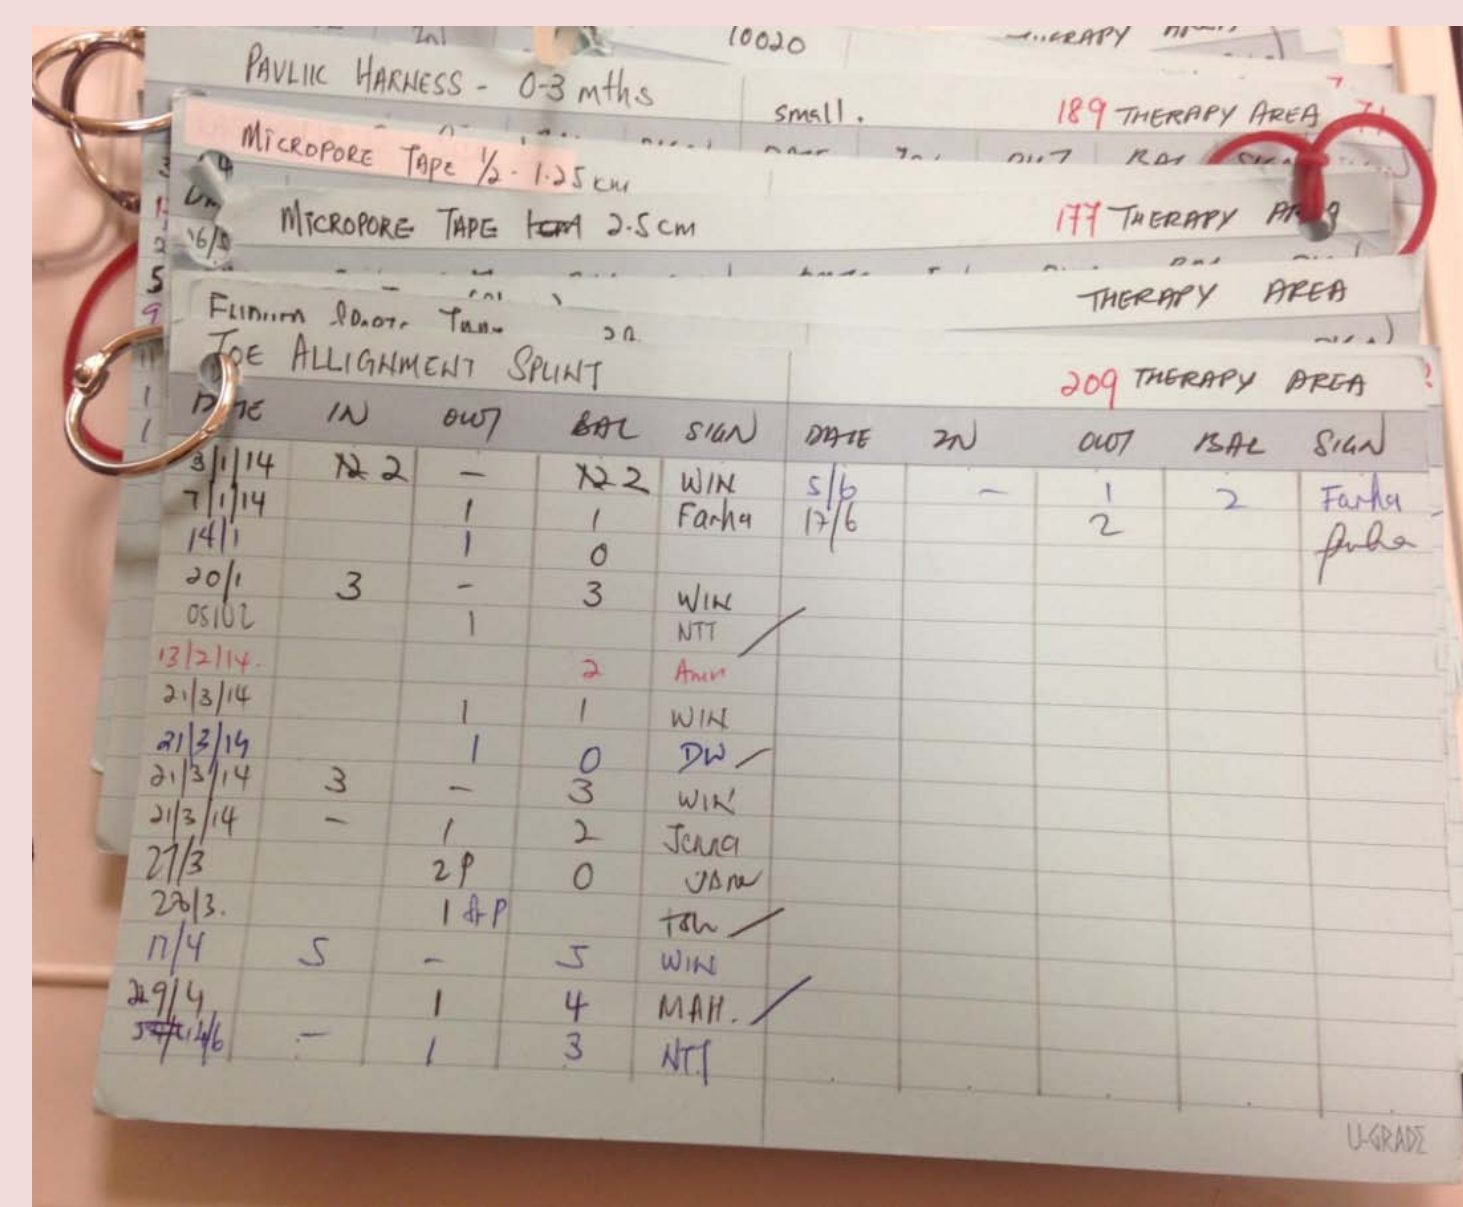 10020
PAVLIK HARNESS - 0-3 mths small. 189 THERAPY AREA
MICROPORE TAPE 1/2 - 1.25 cm
MICROPORE TAPE 2.5 cm 177 THERAPY AREA
THERAPY AREA
TOE ALLIGNMENT SPLINT 209 THERAPY AREA
DATE IN OUT BAL SIGN DATE IN OUT BAL SIGN
3/1/14 2 - 2 WIN 5/6 - 1 2 Farha
7/1/14 1 1 Farha 17/6 2
14/1 1 0
20/1 3 - 3 WIN
05/02 1 NTT
13/2/14. 2
21/3/14 1 1 WIN
21/3/14 1 0 DW
21/3/14 3 - 3 WIN
21/3/14 - 1 2 Jenna
27/3 2P 0
28/3. 1 AP
17/4 5 - 5 WIN
29/4 1 4 MAH.
4/6 - 1 3 NTT
U-GRADE